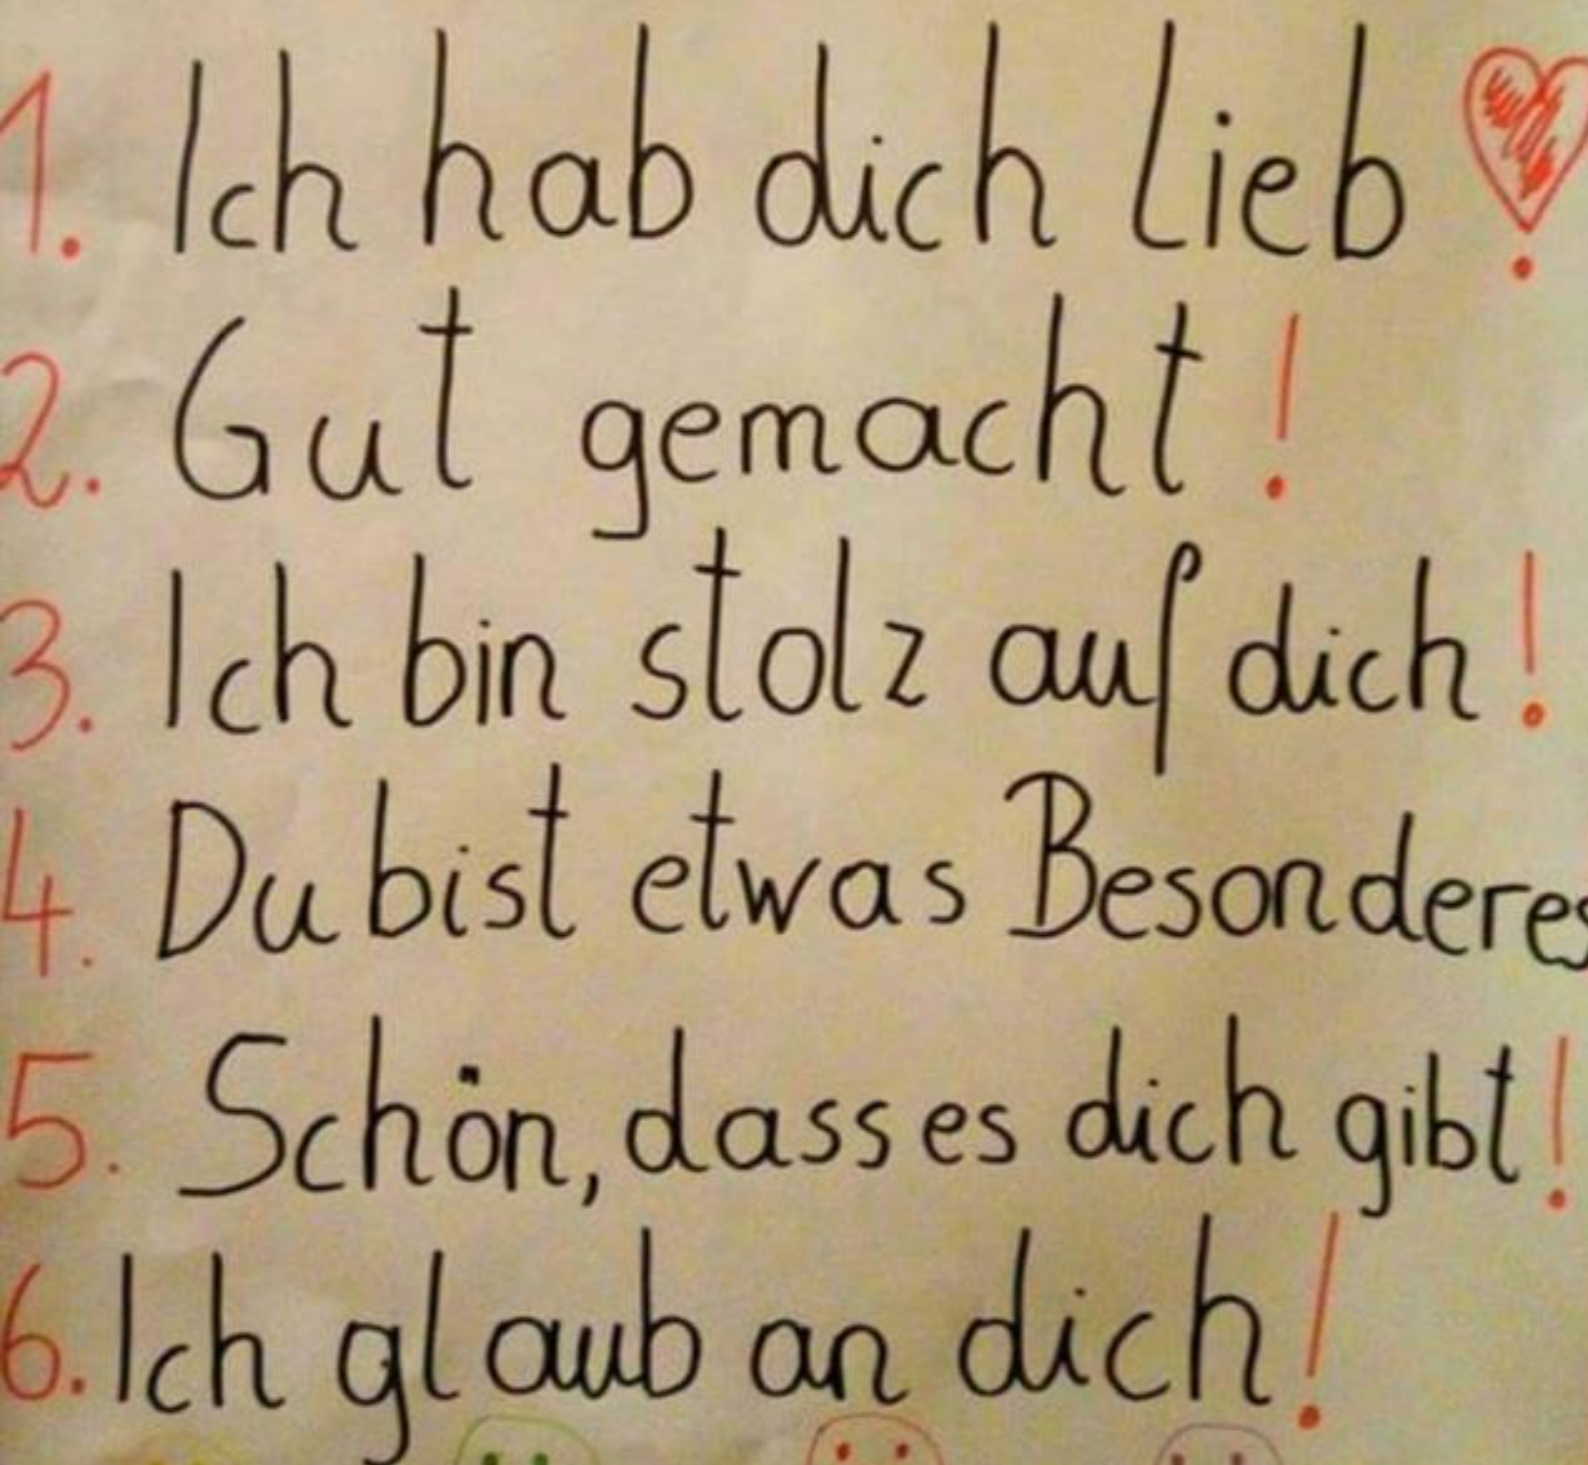 1. Ich hab dich lieb
2. Gut gemacht!
3. Ich bin stolz auf dich!
4. Du bist etwas Besonderes
5. Schön, dass es dich gibt!
6. Ich glaub an dich!